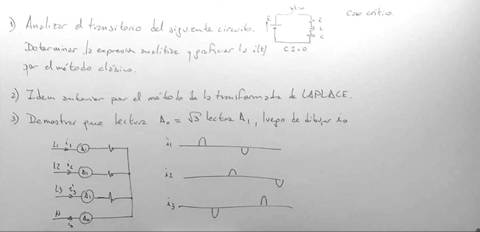 1) Analizar el transitorio del siguiente circuito. Caso crítico.
Determinar la expresión analítica y graficar la i(t) C I = 0
por el método clásico.
2) Idem anterior por el método de la transformada de LAPLACE.
3) Demostrar que lectura A₀ = √3 lectura A₁, luego de dibujar i₀
L1 i₁ A₁ i₁
L2 i₂ A₁ i₂
L3 i₃ A₁ i₃
N A₀
i₀